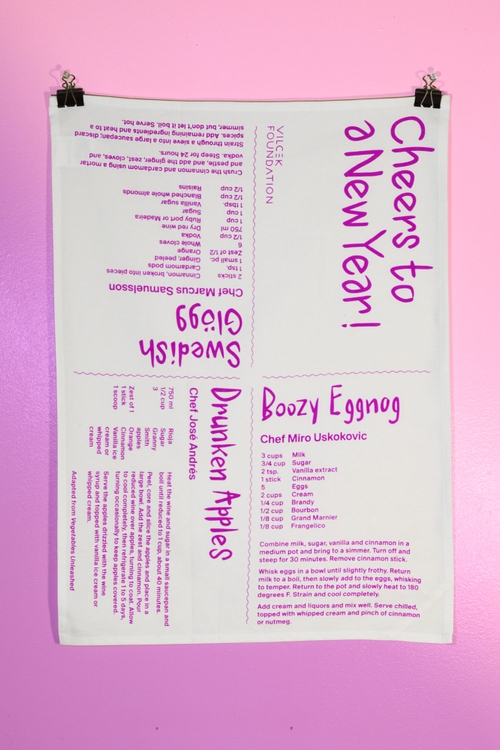 Cheers to
a New Year!
VILCEK
FOUNDATION
Swedish
Glögg
Chef Marcus Samuelsson
2 sticks Cinnamon, broken into pieces
1 tsp. Cardamom pods
1 small pc. Ginger, peeled
Zest of 1/2 Orange
6 Whole cloves
1/2 cup Vodka
750 ml Dry red wine
1 cup Ruby port or Madeira
1 cup Sugar
1 tbsp. Vanilla sugar
1/2 cup Blanched whole almonds
1/2 cup Raisins
Crush the cinnamon and cardamom using a mortar
and pestle, and add the ginger, zest, cloves, and
vodka. Steep for 24 hours.
Strain through a sieve into a large saucepan; discard
spices. Add remaining ingredients and heat to a
simmer, but don't let it boil. Serve hot.
Drunken Apples
Chef José Andrés
750 ml Rioja
1/2 cup Sugar
3 Granny
Smith
apples
Zest of 1 Orange
1 stick Cinnamon
1 scoop Vanilla ice
cream or
whipped
cream
Heat the wine and sugar in a small saucepan and
boil until reduced to 1 cup, about 40 minutes.
Peel, core and slice the apples and place in a
large bowl. Add the zest and cinnamon. Pour
reduced wine over apples, turning to coat. Allow
to cool completely, then refrigerate 1 to 5 days,
turning occasionally to keep apples covered.
Serve the apples drizzled with the wine
syrup and topped with vanilla ice cream or
whipped cream.
Adapted from Vegetables Unleashed
Boozy Eggnog
Chef Miro Uskokovic
3 cups Milk
3/4 cup Sugar
2 tsp. Vanilla extract
1 stick Cinnamon
5 Eggs
2 cups Cream
1/4 cup Brandy
1/2 cup Bourbon
1/8 cup Grand Marnier
1/8 cup Frangelico
Combine milk, sugar, vanilla and cinnamon in a
medium pot and bring to a simmer. Turn off and
steep for 30 minutes. Remove cinnamon stick.
Whisk eggs in a bowl until slightly frothy. Return
milk to a boil, then slowly add to the eggs, whisking
to temper. Return to the pot and slowly heat to 180
degrees F. Strain and cool completely.
Add cream and liquors and mix well. Serve chilled,
topped with whipped cream and pinch of cinnamon
or nutmeg.